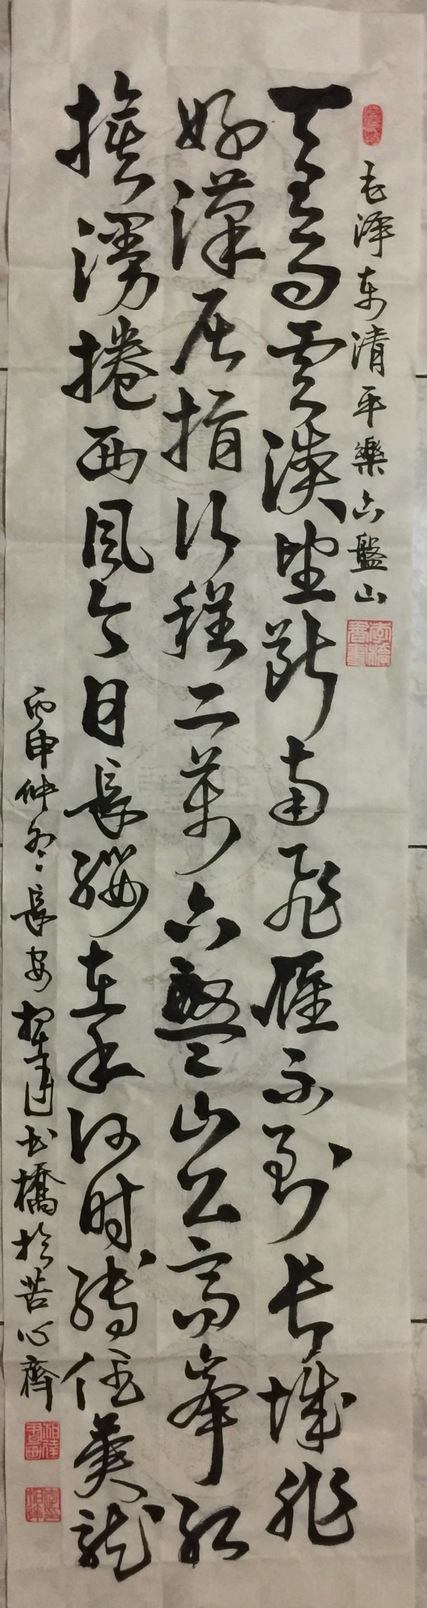 毛泽东清平樂六盤山
天高雲淡望斷南飛雁不到长城非
好漢屈指行程二萬六盤山上高峯红
旗漫捲西風今日長纓在手何时縛住蒼龍
丙申仲冬長安書橋於苦心齊